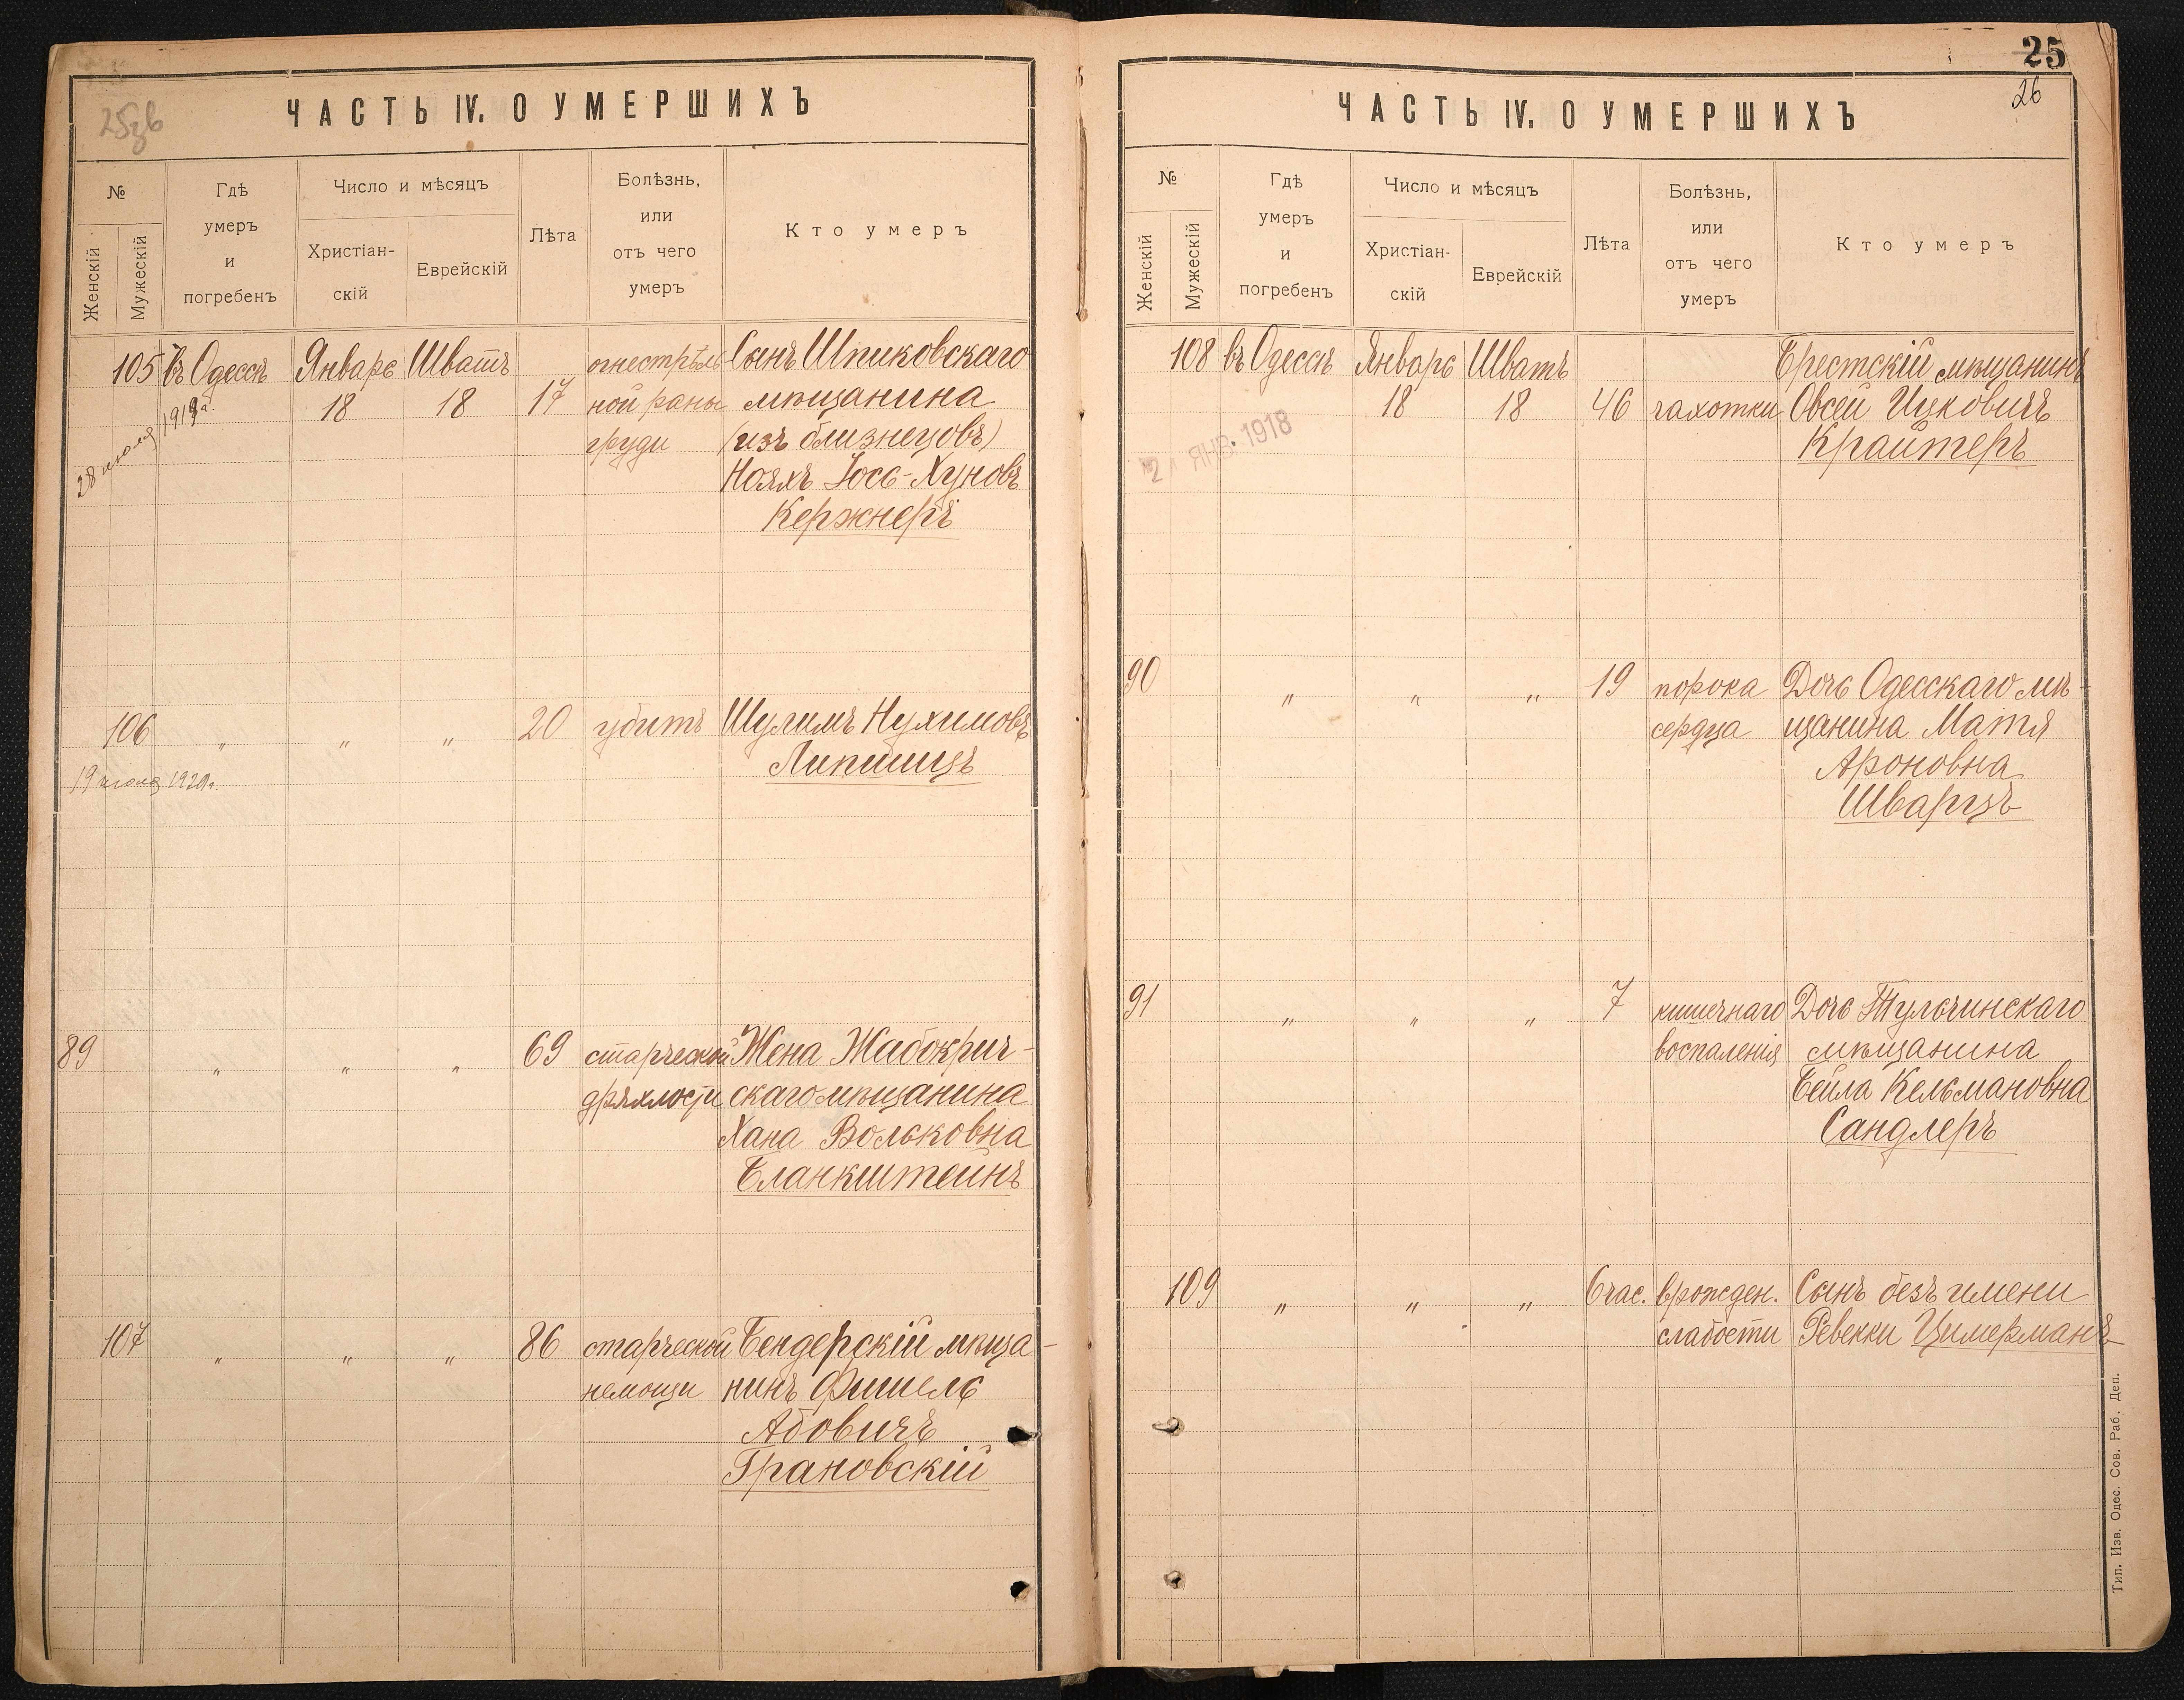 25зв
ЧАСТЬ IV. О УМЕРШИХЪ
№
Женскій
Мужескій
Гдѣ
умеръ
и
погребенъ
Число и мѣсяцъ
Христіан-
скій
Еврейскій
Лѣта
Болѣзнь,
или
отъ чего
умеръ
Кто умеръ
105 въ Одессѣ Январь Шватъ огнестрѣль Сынъ Шпиковскаго
18 18 17 ной раны мѣщанина
груди (изъ близнецовъ)
Нояхъ Іось-Хуновъ
Кержнеръ
28 июля 1919 г.
106 " " " 20 убитъ Шулимъ Нухимовъ
Липшицъ
19 июля 1920 г.
89 " " " 69 старческой Жена Жабокрич-
дряхлости скаго мѣщанина
Хана Вольковна
Бланкштейнъ
107 " " " 86 старческой Бендерскій мѣща-
немощи нинъ Фишель
Абовичъ
Грановскій
25
26
ЧАСТЬ IV. О УМЕРШИХЪ
№
Женскій
Мужескій
Гдѣ
умеръ
и
погребенъ
Число и мѣсяцъ
Христіан-
скій
Еврейскій
Лѣта
Болѣзнь,
или
отъ чего
умеръ
Кто умеръ
108 въ Одессѣ Январь Шватъ Брестскій мѣщанинъ
18 18 46 чахотки Овсей Ицковичъ
Крайтеръ
ЯНВ. 1918
90 " " " 19 порока Дочь Одесскаго мѣ-
сердца щанина Матя
Ароновна
Шварцъ
91 " " " 7 кишечнаго Дочь Тульчинскаго
воспаленія мѣщанина
Бейла Кельмановна
Сандлеръ
109 " " " 6 час. врожден. Сынъ безъ имени
слабости Ревекки Цимерманъ
Тип. Изв. Одес. Сов. Раб. Деп.